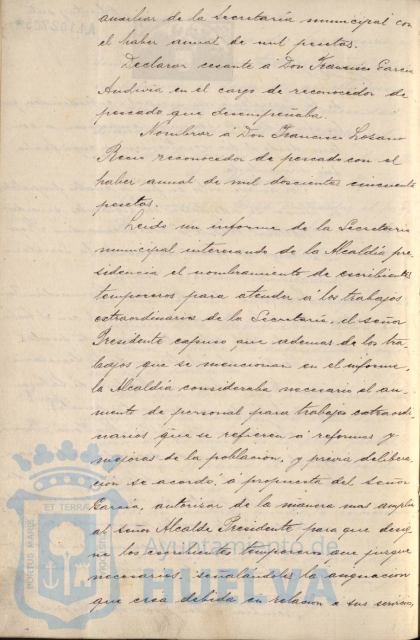 auxiliar de la Secretaría municipal con
el haber anual de mil pesetas.
Declarar cesante á Don Francisco García
Andivia en el cargo de reconocedor de
pescado que desempeñaba.
Nombrar á Don Francisco Lozano
reconocedor de pescado con el
haber anual de mil doscientas cincuenta
pesetas.
Leido un informe de la Secretaría
municipal interesando de la Alcaldía pre
sidencia el nombramiento de escribientes
temporeros para atender á los trabajos
extraordinarios de la Secretaría, el señor
Presidente expuso que ademas de los tra
bajos que se mencionan en el informe,
la Alcaldía consideraba necesario el au
mento de personal para trabajos extraordi
narios que se refieren á reformas y
mejoras de la poblacion, y previa delibera
cion se acordó, á propuesta del señor
García, autorizar de la manera mas amplia
al señor Alcalde Presidente para que desig
ne los escribientes temporeros que juzgue
necesarios, señalándoles la asignacion
que crea debida en relacion á sus servicios,
ET TERRA
PORTUS MARIS
CUSTODIA
Ayuntamiento de
HUELVA